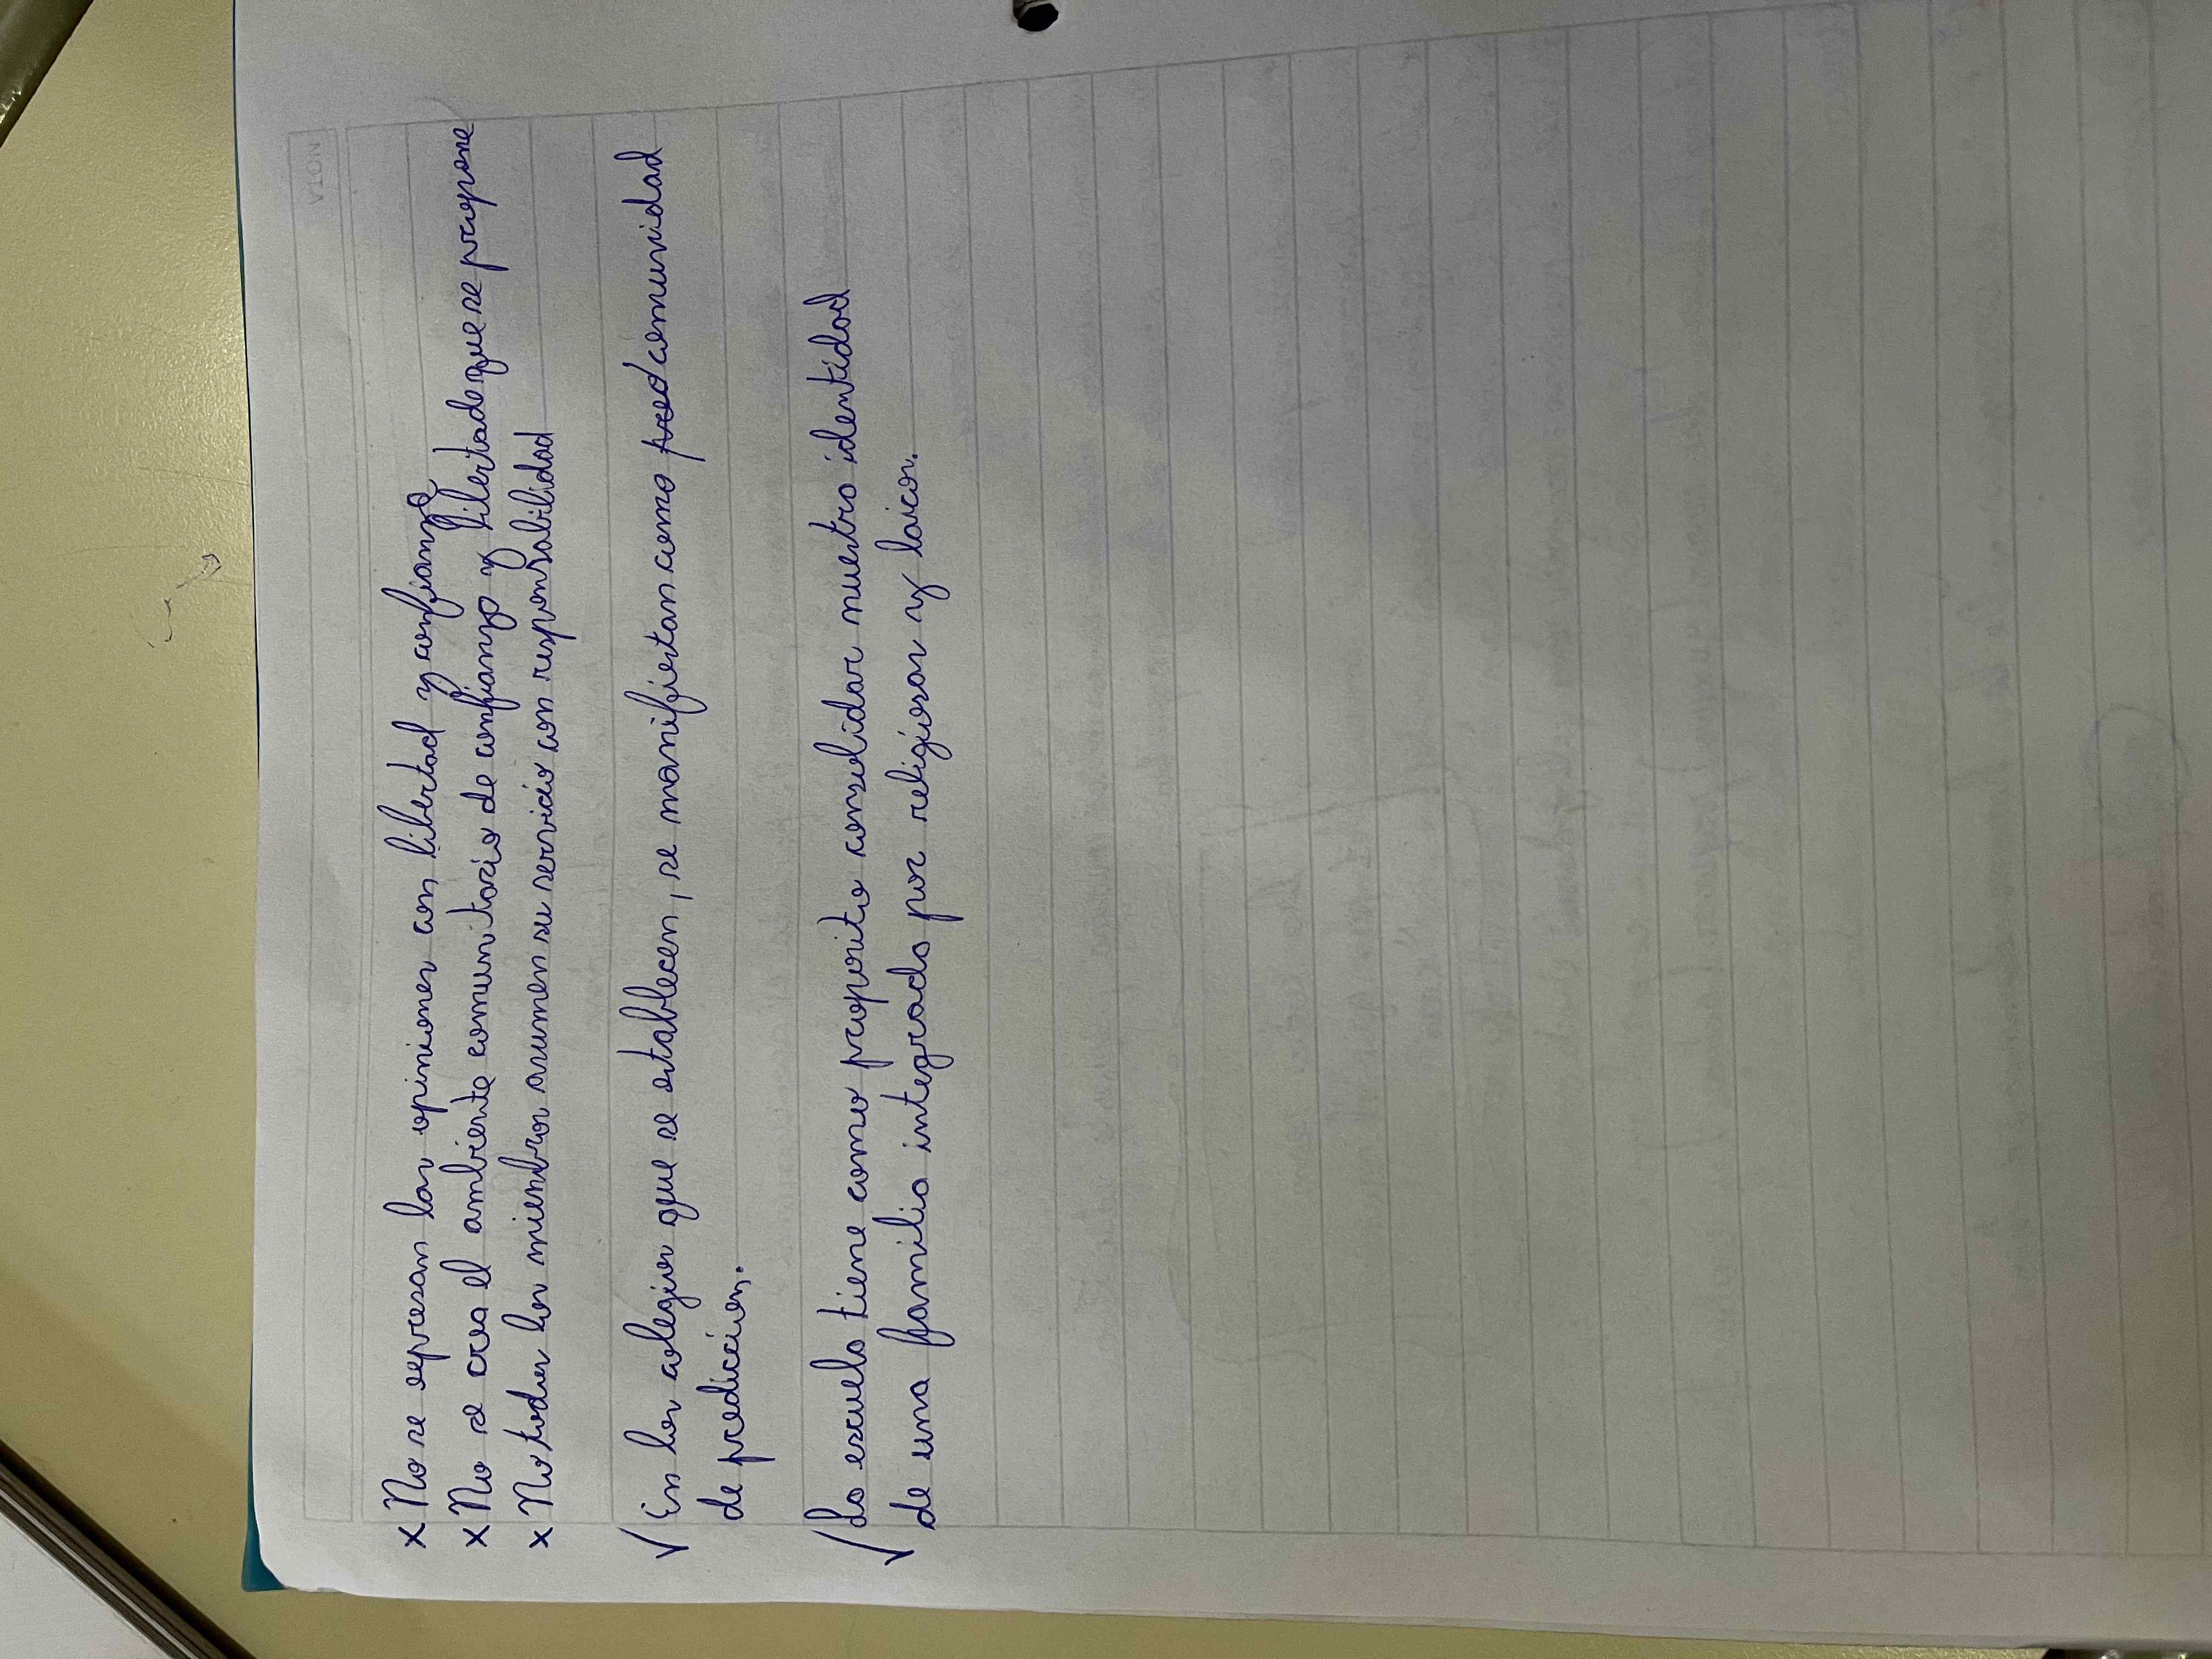 NOTA
x No se epresan las opiniones con libertad y confianza
x No se crea el ambiente comunitario de confianza y libertade que se propone
x No todos los miembros asumen su servicio con responsabilidad
√ En los colegios que se establecen, se manifiestan como pred comunidad
de predicción.
√ La escuela tiene como proposito consolidar nuestra identidad
de una familia integrada por religiosos y laicos.